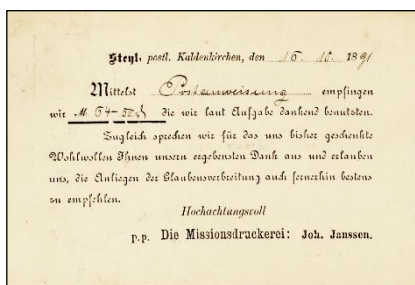 Steyl, postl. Kaldenkirchen, den 16. 10. 1891
Mittelst Postanweisung empfingen
wir M. 64-50 ₰ die wir laut Aufgabe dankend benutzten.
Zugleich sprechen wir für das uns bisher geschenkte
Wohlwollen Ihnen unsern ergebensten Dank aus und erlauben
uns, die Anliegen der Glaubensverbreitung auch fernerhin bestens
zu empfehlen.
Hochachtungsvoll
p.p. Die Missionsdruckerei: Joh. Janssen.